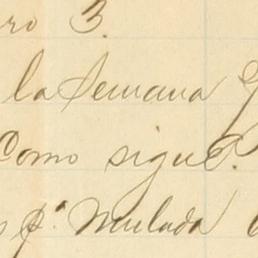 ro 3.
la Semana
Como sigue.
s pª Mulada